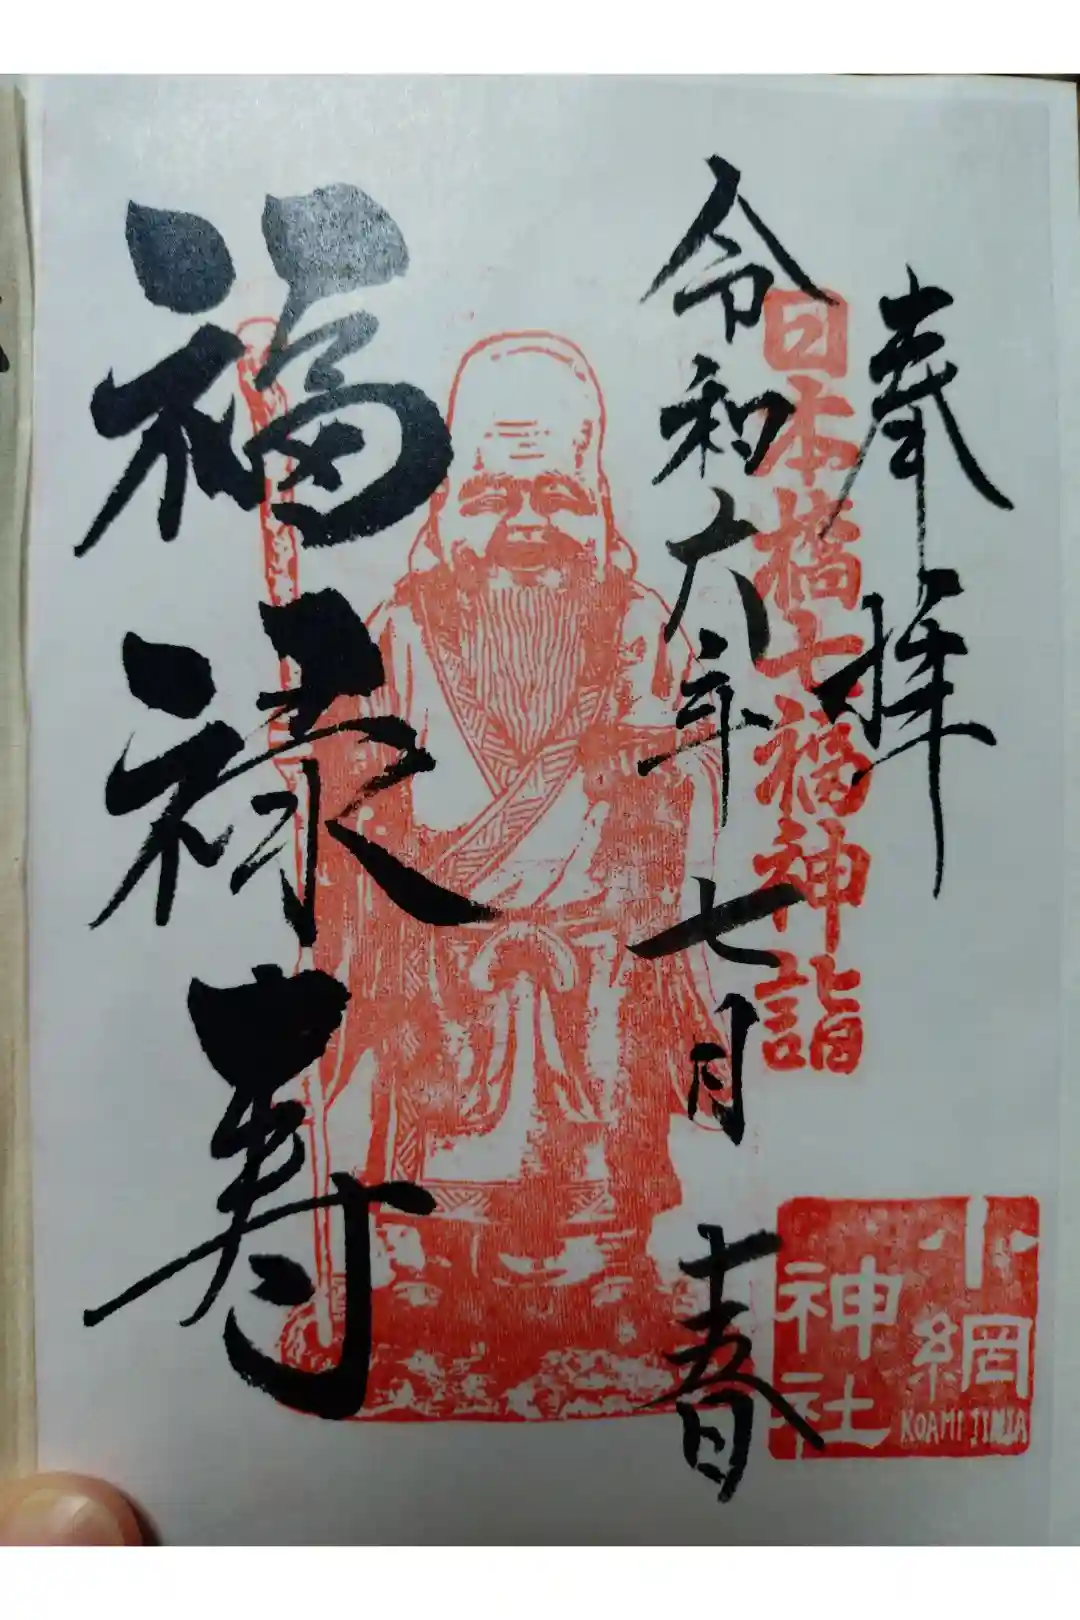 奉拝
日本橋七福神詣
令和六年七月十 日
福禄寿
小網
神社
KOAMI JINJA